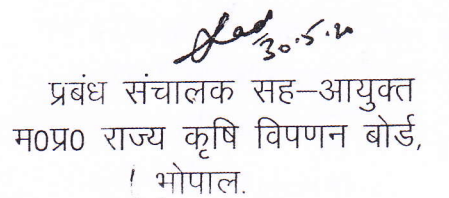 30.5.20
प्रबंध संचालक सह–आयुक्त
म0प्र0 राज्य कृषि विपणन बोर्ड,
भोपाल.